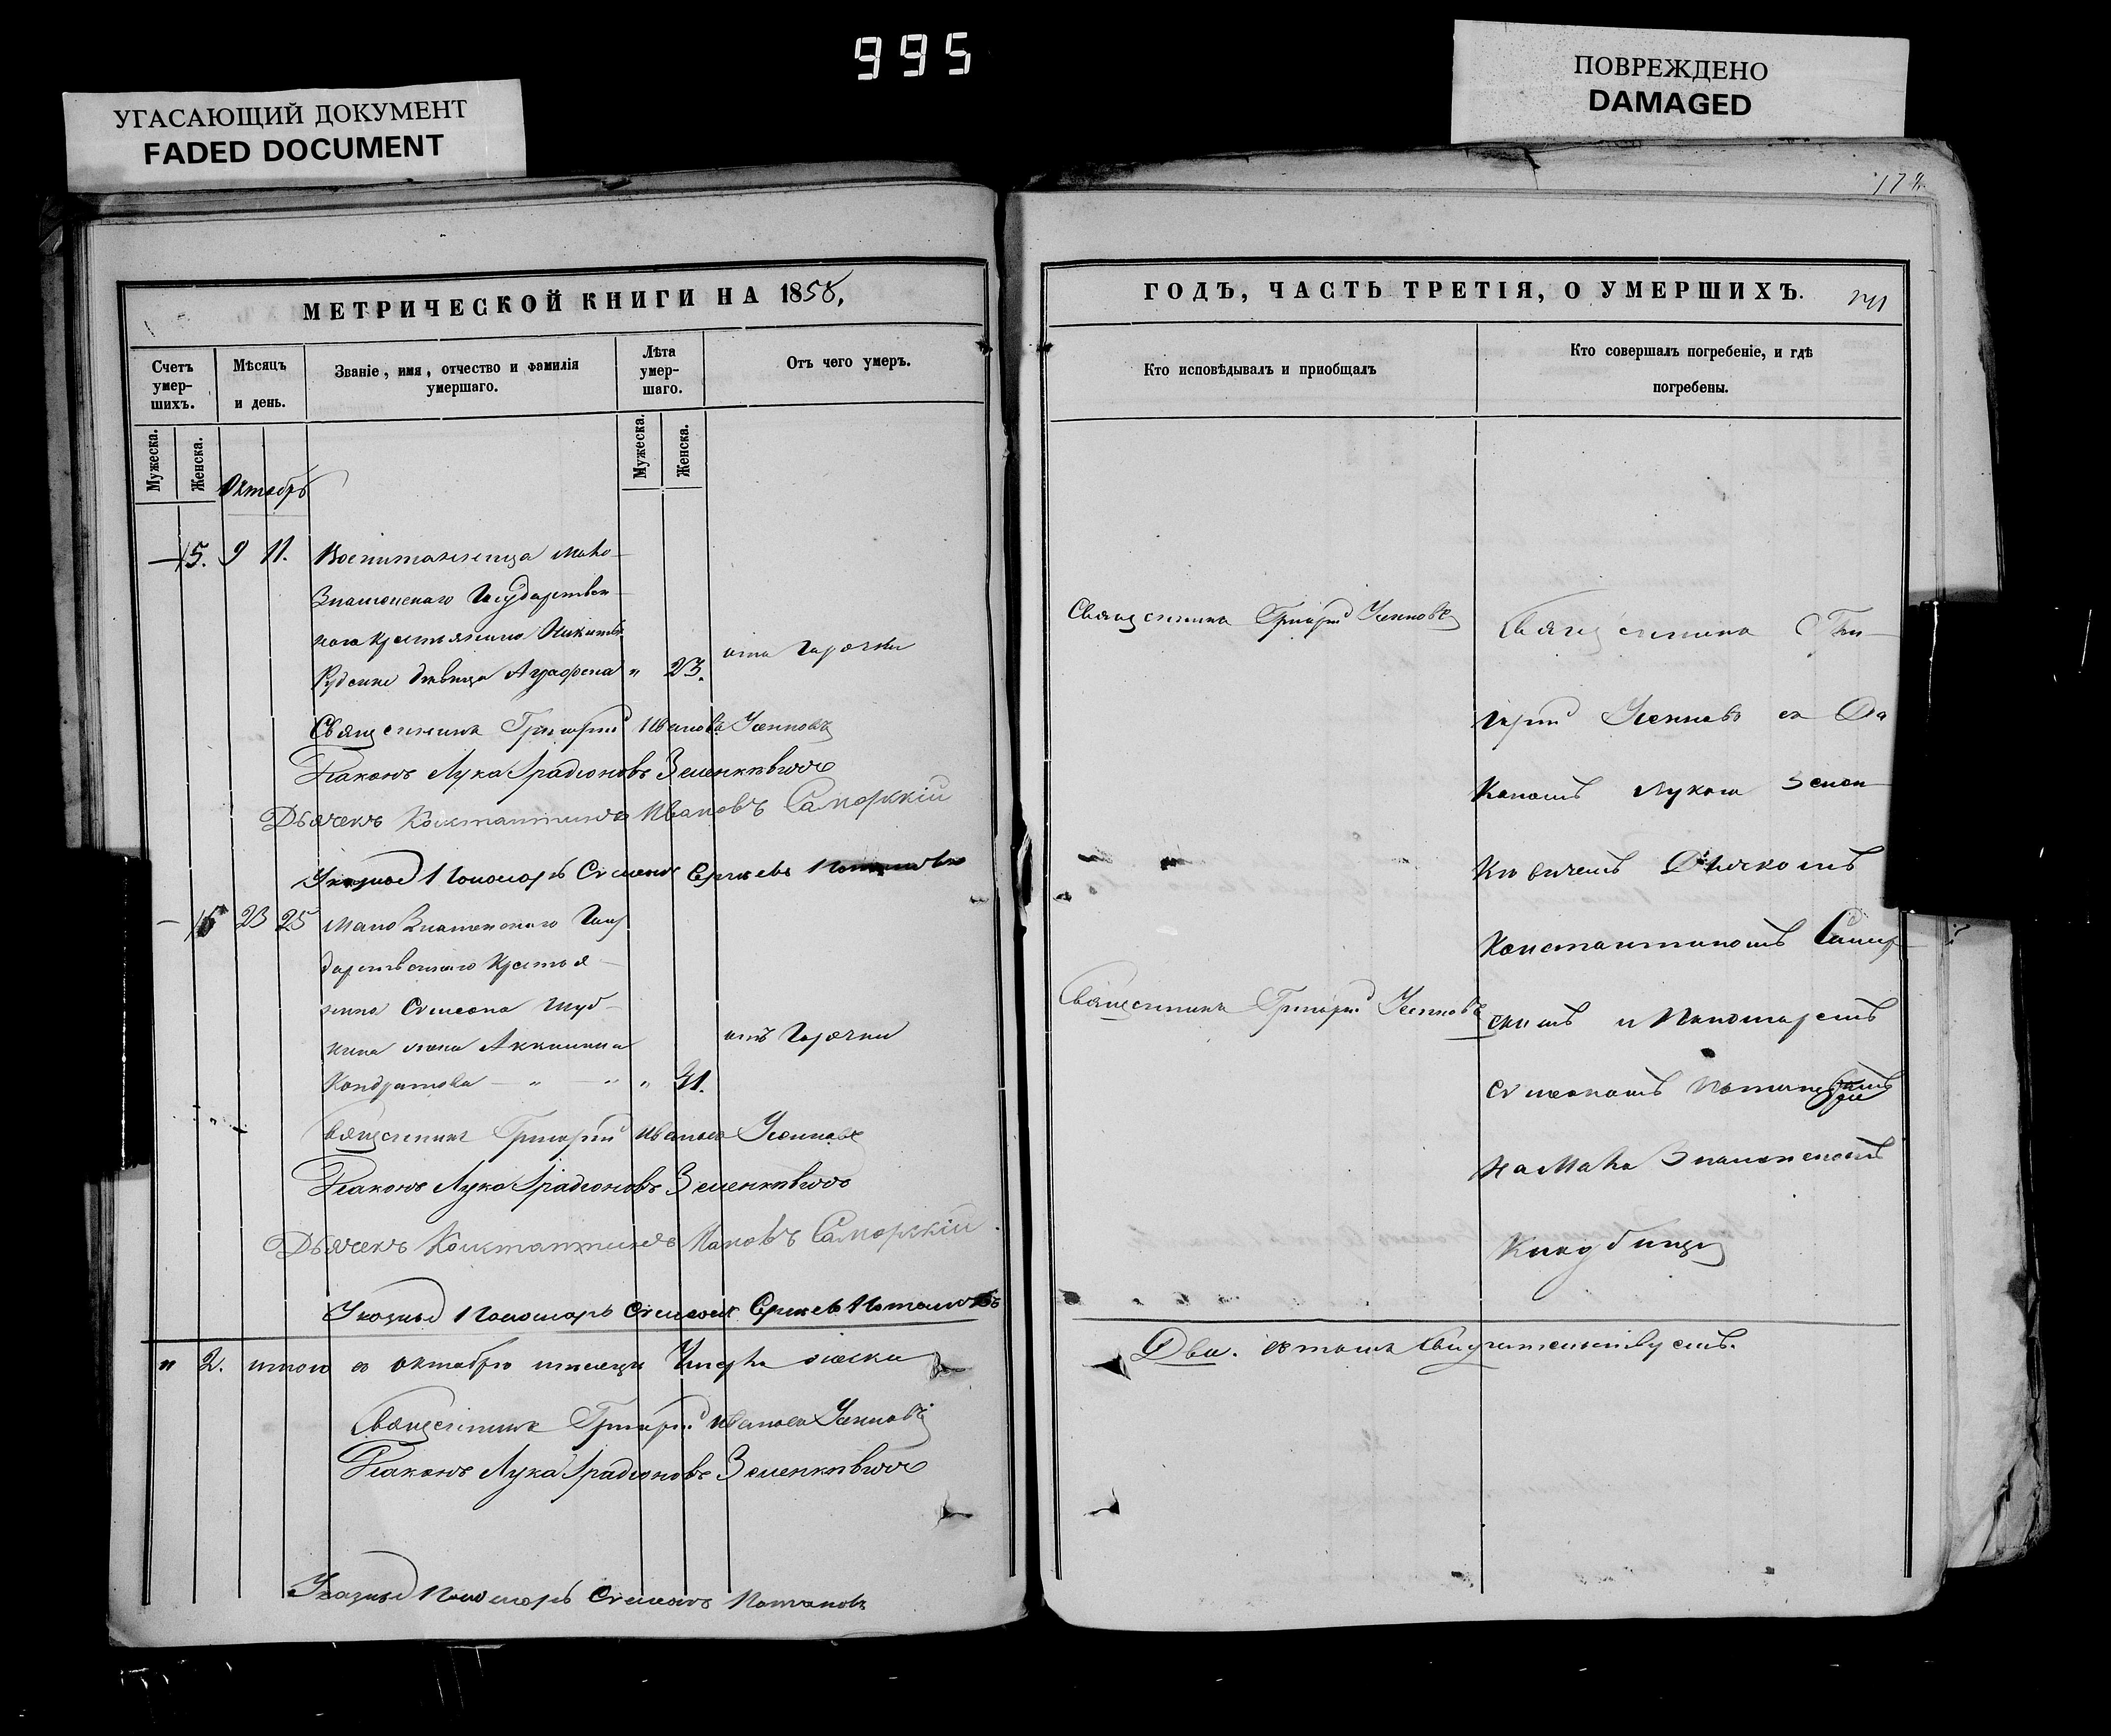 995
УГАСАЮЩИЙ ДОКУМЕНТ
FADED DOCUMENT
ПОВРЕЖДЕНО
DAMAGED
МЕТРИЧЕСКОЙ КНИГИ НА 1858,
Счетъ умер-шихъ.
Мѣсяцъ и день.
Званіе, имя, отчество и фамилія умершаго.
Лѣта умер-шаго.
Отъ чего умеръ.
Мужеска.
Женска.
Мужеска.
Женска.
Октябрь
— 15. 9 11. Воспитанница Мало
Знаменскаго Государствен
наго крестьянина Никиты
девица Агафена " 23. отъ Горячки
Священникъ Григорій Ивановъ Усенновъ
Діаконъ Лука Ірадіоновъ Зеленкевичъ
Дьячекъ Константинъ Ивановъ Саморскій
Указный Пономарь Симеонъ Сергіевъ Потаповъ
— 16 23 25 Мало Знаменскаго Госу
дарственнаго Крестья
нина Симеона Шуб
кина жена Аккилина отъ Горячки
Кондратова — " — " " 41.
Священникъ Григорій Ивановъ Усенновъ
Діаконъ Лука Ірадіоновъ Зеленкевичъ
Дьячекъ Константинъ Ивановъ Саморскій
Указный Пономарь Симеонъ Сергіевъ Потаповъ
" 2. итого въ октябрѣ месяцѣ Умерло женска
Священникъ Григорій Ивановъ Усенновъ
Діаконъ Лука Ірадіоновъ Зеленкевичъ
Указный Пономарь Симеонъ Потаповъ
ГОДЪ, ЧАСТЬ ТРЕТІЯ, О УМЕРШИХЪ.
Кто исповѣдывалъ и пріобщалъ
Кто совершалъ погребеніе, и гдѣ погребены.
Священникъ Григорій Усенновъ
Священникъ Гри
горій Усенновъ съ Діа
кономъ Лукою Зелен
кевичемъ Дьячкомъ
Константиномъ Самор
Священникъ Григорій Усенновъ
скимъ и Пономаремъ
Симеономъ Потаповымъ
На Мало Знаменскомъ
Кладбищѣ
Два. въ томъ свидѣтельствуемъ.